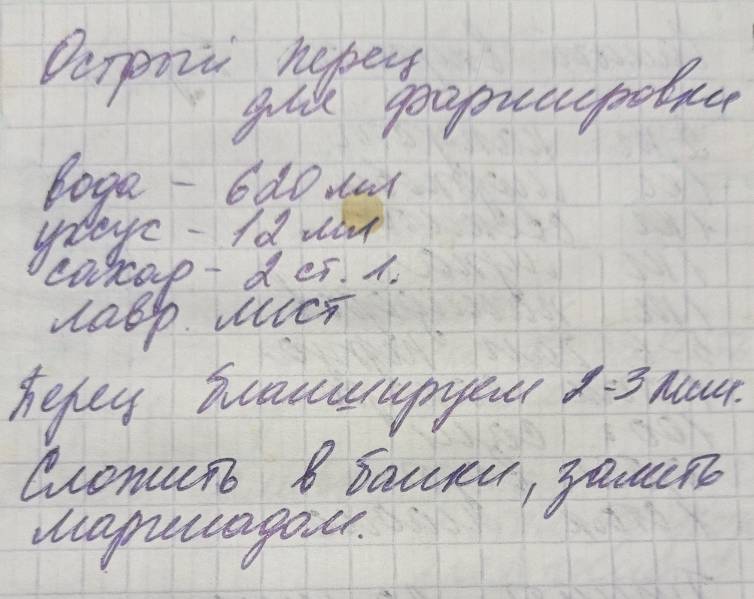 Острый перец
для фаршировки
вода - 620 мл
уксус - 12 мл
сахар - 2 ст. л.
лавр. лист
Перец бланшируем 2-3 мин.
Сложить в банки, залить
маринадом.